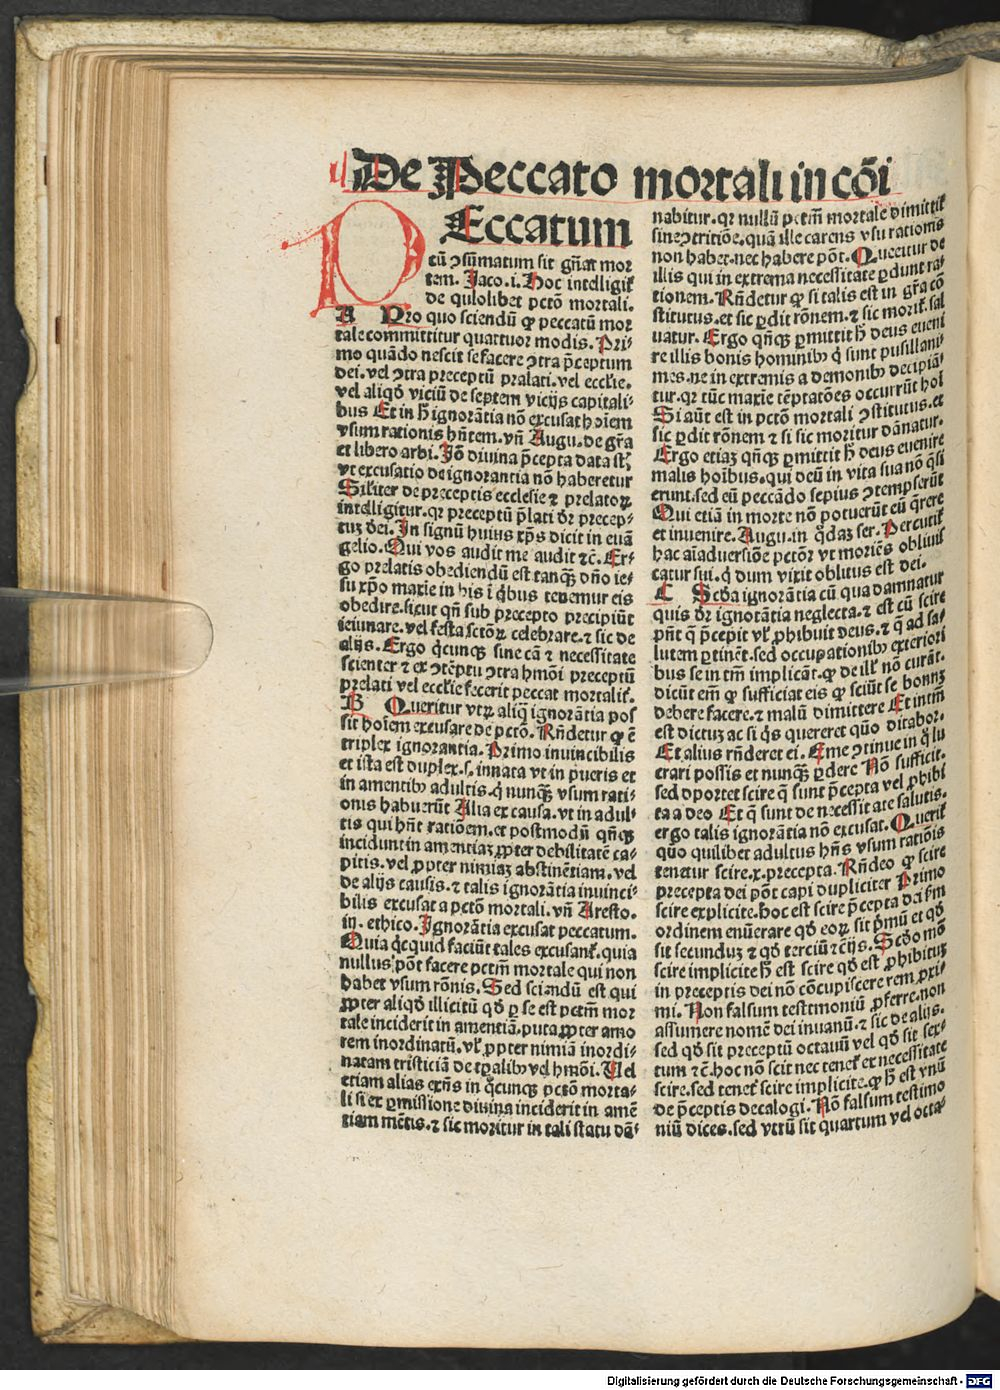 De Peccato mortali in cōi
PEccatum
cū ɔsūmatum sit gn̄at mor
tem. Jaco. i. Hoc intelligit̄
de quolibet pctō mortali.
A Pro quo sciendū ꝙ peccatū mor
tale committitur quattuor modis. Pri⸗
mo quādo nescit se facere ɔtra p̄ceptum
dei. vel ɔtra preceptū pralati. vel eccl̄ie.
vel aliqd̄ viciū de septem vicijs capitali⸗
bus Et in h̄ ignorātia nō excusat hoīem
vsum rationis hn̄tem. vn̄ Augu. de gr̄a
et libero arbi. Jō diuina p̄cepta data st̄.
vt excusatio de ignorantia nō haberetur
Sil̄iter de preceptis ecclesie ⁊ prelatoꝝ
intelligitur. qꝛ preceptū p̄lati dr̄ precep⸗
tuꝫ dei. Jn signū huius xp̄s dicit in euā
gelio. Qui vos audit me audit ⁊c̄. Er⸗
go prelatis obediendū est tanqꝫ dn̄o ie⸗
su xp̄o maxie in his ī qͥbus tenemur eis
obedire. sicut qn̄ sub precepto precipiūt
ieiunare. vel festa sctōꝝ celebrare. ⁊ sic de
alijs. Ergo qͥcunqꝫ sine cā ⁊ necessitate
scienter ⁊ ex ɔtēptu ɔtra hmōi preceptū
prelati vel eccl̄ie fecerit peccat mortalit̄.
B Queritur vtꝝ aliq̄ ignorātia pos
sit hoīem excusare de pctō. Rn̄detur ꝙ ē
triplex ignorantia. Primo inuincibilis
et ista est duplex. s. innata vt in pueris et
in amentibꝰ adultis. q̄ nunqꝫ vsum rati⸗
onis habuerūt Alia ex causa. vt in adul⸗
tis qui hn̄t ratiōem. et postmodū qn̄qꝫ
incidunt in amentiaꝫ ꝓpter debilitatē ca⸗
pitis. vel ꝓpter nimiaꝫ abstinētiam. vel
de alijs causis. ⁊ talis ignorātia inuinci⸗
bilis excusat a pctō mortali. vn̄ Aresto.
in. ethico. Jgnorātia excusat peccatum.
Quia qͥcquid faciūt tales excusant̄. quia
nullus pōt facere pctm̄ mortale qui non
habet vsum rōnis. Sed sciendū est qui
ꝓpter aliqd̄ illicitū qd̄ ꝑ se est pctm̄ mor
tale inciderit in amentiā. puta ꝓpter amo
rem inordinatū. vl̄ ꝓpter nimiā inordi⸗
natam tristiciā de tꝑalibꝰ vel hmōi. Uel
etiam alias exn̄s in qͥcunqꝫ pctō morta⸗
li si ex ꝑmissione diuina inciderit in amē
tiam mētis. ⁊ sic moritur in tali statu dā⸗
nabitur. qꝛ nullū pctm̄ mortale dimittit̄
sine ɔtritiōe. quā ille carens vsu rationis
non habet. nec habere pōt. Queritur de
illis qui in extrema necessitate ꝑdunt ra⸗
tionem. Rn̄detur ꝙ si talis est in gr̄a cō
stitutus. et sic ꝑdit rōnem. ⁊ sic morit̄. sal
uatur. Ergo qn̄qꝫ ꝑmittit h̄ deus eueni
re illis bonis hominibꝰ q̄ sunt pusillani⸗
mes. ne in extremis a demonibꝰ decipiā⸗
tur. qꝛ tūc maxie tēptatōes occurrūt hoī
Si aūt est in pctō mortali ɔstitutus. et
sic ꝑdit rōnem ⁊ si sic moritur dānatur.
Ergo etiaꝫ qn̄qꝫ ꝑmittit h̄ deus euenire
malis hoībus. qui deū in vita sua nō q̄si
erunt. sed eū peccādo sepius ɔtempserūt
Qui etiā in morte nō potuerūt eū q̄rere
et inuenire. Augu. in qͦdaꝫ ser. Percutit̄
hac aīaduersiōe pctōr vt moriēs obliuis
catur sui. q̄ dum vixit oblitus est dei.
C Scd̄a ignorātia cū qua damnatur
quis dr̄ ignorātia neglecta. ⁊ est cū scire
pn̄t q̄ p̄cepit vl̄ ꝓhibuit deus. ⁊ q̄ ad sa⸗
lutem ꝑtinēt. sed occupationibꝰ exteriori
bus se in tm̄ implicāt. ꝙ de ill̄ nō curāt.
dicūt em̄ ꝙ sufficiat eis ꝙ sciūt se bonuꝫ
debere facere. ⁊ malū dimittere Et intm̄
est dictuꝫ ac si qͥs quereret quō ditabor.
Et alius rn̄deret ei. Eme ɔtinue in q̄ lu
crari possis et nunqꝫ ꝑdere Nō sufficit.
sed oportet scire q̄ sunt p̄cepta vel ꝓhibi
ta a deo Et q̄ sunt de necessitate salutis.
ergo talis ignorātia nō excusat. Querit̄
quō quilibet adultus hn̄s vsum ratiōis
tenetur scire. x. precepta. Rn̄deo ꝙ scire
precepta dei pōt capi dupliciter Primo
scire explicite. hoc est scire p̄cepta dei ẜm
ordinem enūerare qd̄ eoꝝ sit p̄mū et qd̄
sit secunduꝫ ⁊ qd̄ terciū ⁊c̄ijs. Scd̄o mō
scire implicite h̄ est scire qd̄ est ꝓhibituꝫ
in preceptis dei nō cōcupiscere rem ꝓxi⸗
mi. Non falsum testimoniū ꝓferre. non
assumere nomē dei inuanū. ⁊ sic de alijs.
sed qd̄ sit preceptū octauū vel qd̄ sit sex⸗
tum ⁊c̄. hoc nō scit nec tenet̄ ex necessitate
scire. sed tenet̄ scire implicite. ꝙ h̄ est vnū
de p̄ceptis decalogi. Nō falsum testimo
niū dices. sed vtrū sit quartum vel octa⸗
Digitalisierung gefördert durch die Deutsche Forschungsgemeinschaft - DFG